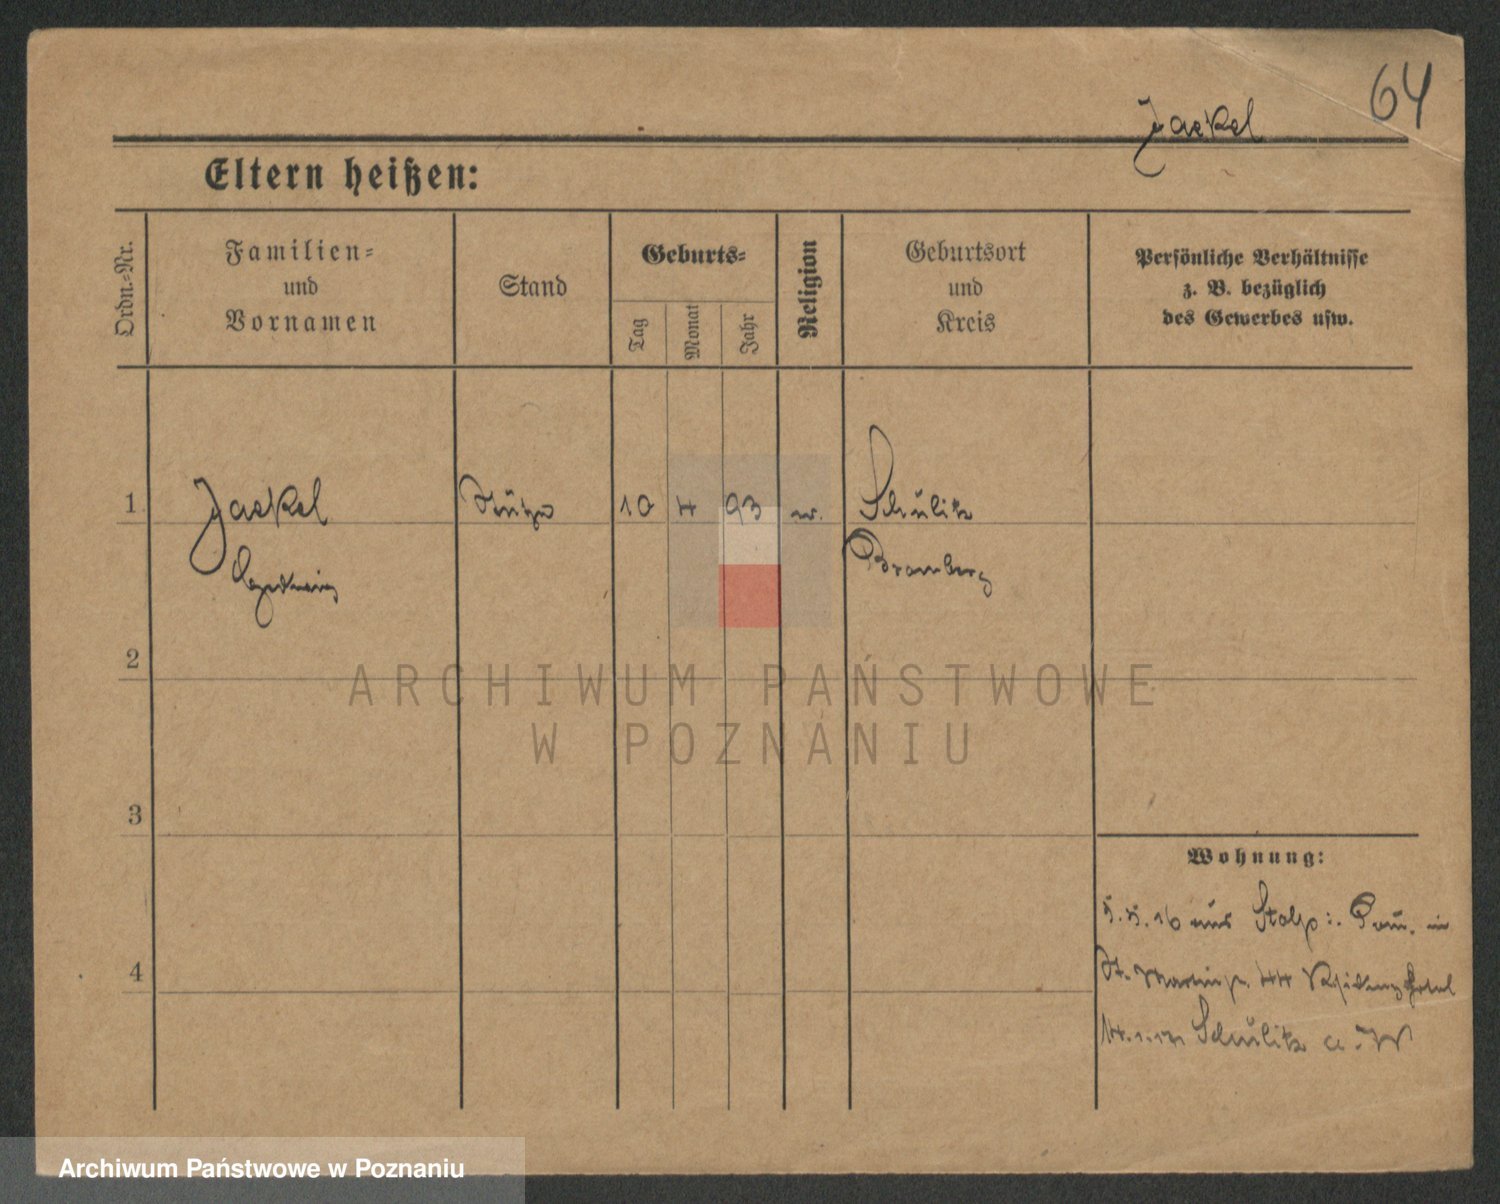 64
Jaekel
Eltern heißen:
Ordn.-Nr.
Familien-
und
Vornamen
Stand
Geburts-
Tag
Monat
Jahr
Religion
Geburtsort
und
Kreis
Persönliche Verhältnisse
z. B. bezüglich
des Gewerbes usw.
1
Jaekel
Hedwig
Stütze
10
4
93
Schulitz
Bromberg
2
ARCHIWUM PAŃSTWOWE
W POZNANIU
3
4
Wohnung:
5.5.16 aus Stolp i. Pom. in
St. Martinstr. 44
Schulitz a. W
Archiwum Państwowe w Poznaniu